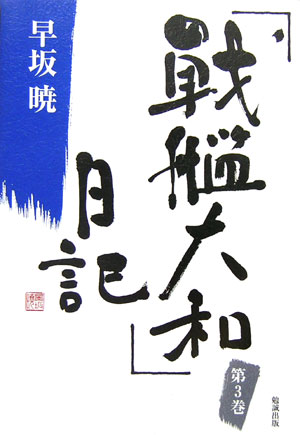 「戦艦大和」
日記
早坂 暁
第3巻
勉誠出版